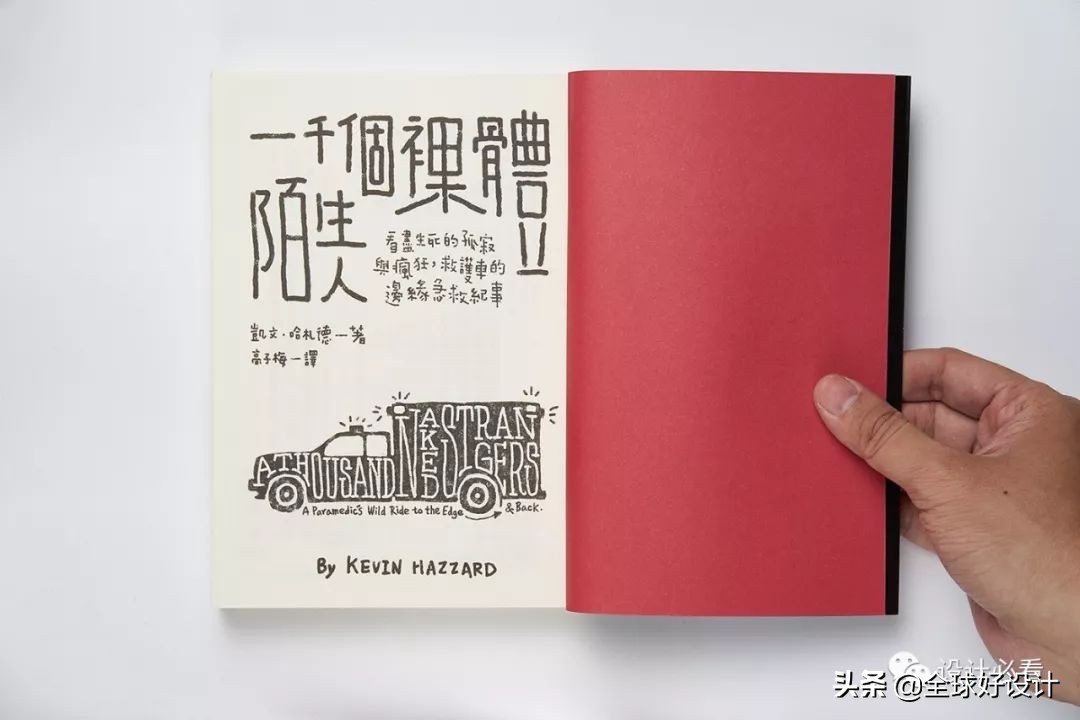 一千個裸體
陌生人
看盡生死的孤寂
與瘋狂，救護車的
邊緣急救紀事
凱文·哈札德—著
高子梅—譯
A THOUSAND NAKED STRANGERS
A Paramedic's Wild Ride to the Edge & Back.
By KEVIN HAZZARD
设计必看
头条 @全球好设计